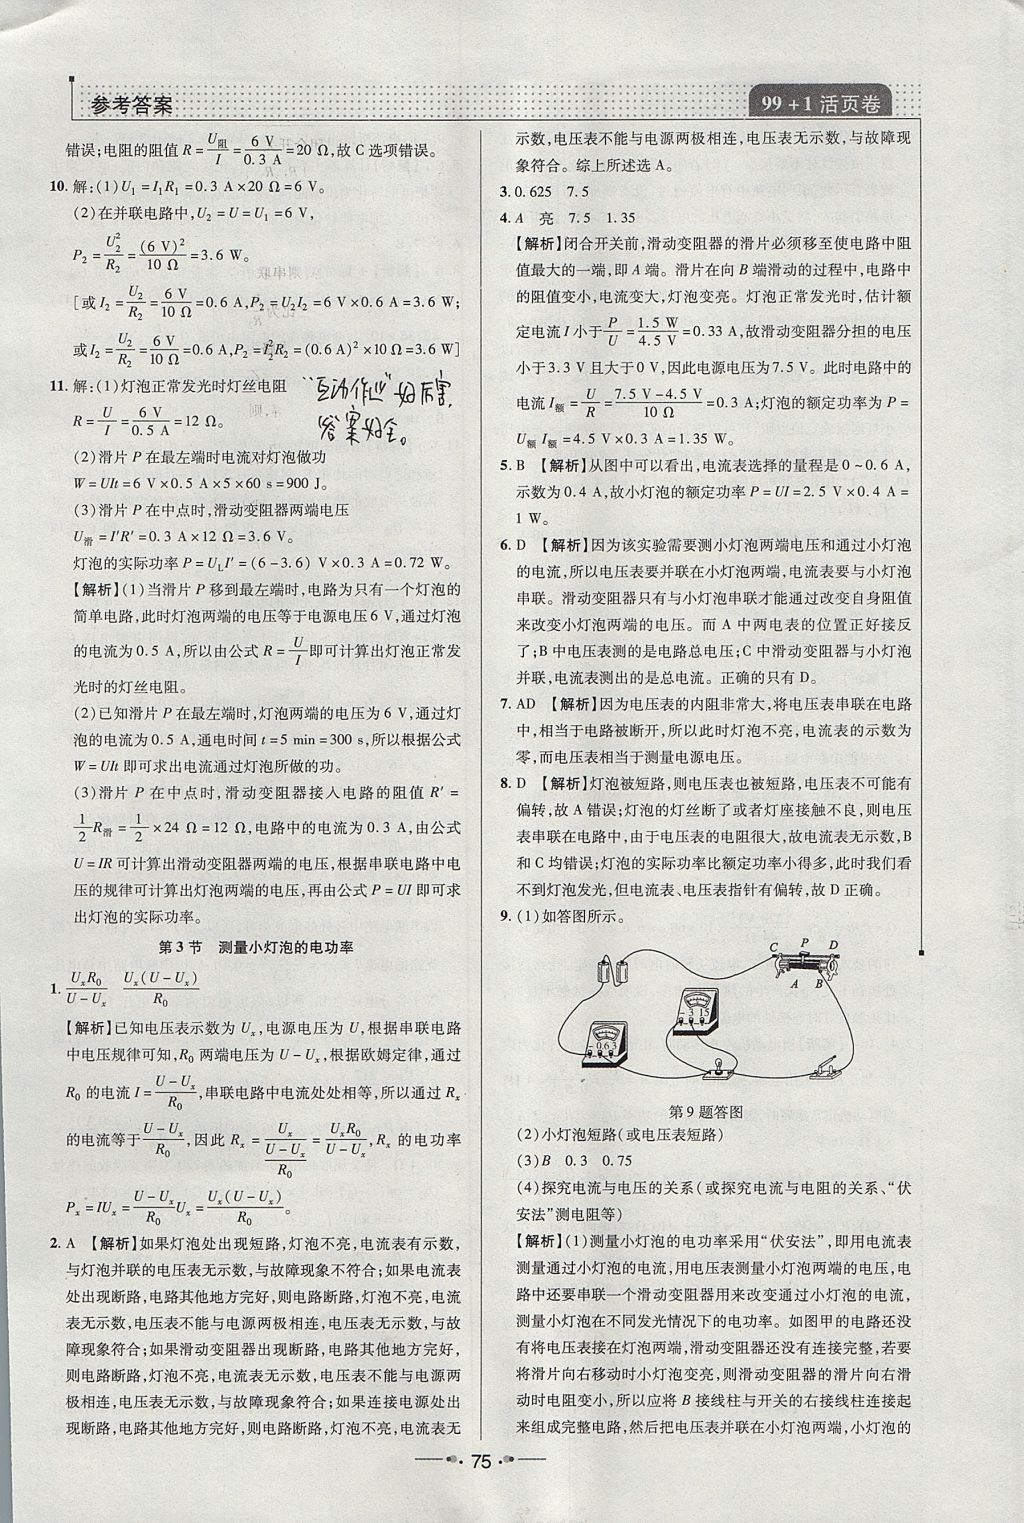 参考答案
99+1活页卷
错误;电阻的阻值R=U阻/I=6 V/0.3 A=20 Ω,故C选项错误。
10. 解:(1)U₁=I₁R₁=0.3 A×20 Ω=6 V。
(2)在并联电路中,U₂=U=U₁=6 V,
P₂=U₂²/R₂=(6 V)²/10 Ω=3.6 W。
[或I₂=U₂/R₂=6 V/10 Ω=0.6 A,P₂=U₂I₂=6 V×0.6 A=3.6 W;
或I₂=U₂/R₂=6 V/10 Ω=0.6 A,P₂=I₂²R₂=(0.6 A)²×10 Ω=3.6 W]
11. 解:(1)灯泡正常发光时灯丝电阻
R=U/I=6 V/0.5 A=12 Ω。
"互动作业"好厉害,
答案好全。
(2)滑片P在最左端时电流对灯泡做功
W=UIt=6 V×0.5 A×5×60 s=900 J。
(3)滑片P在中点时,滑动变阻器两端电压
U滑=I′R′=0.3 A×12 Ω=3.6 V。
灯泡的实际功率P=U_L I′=(6-3.6) V×0.3 A=0.72 W。
【解析】(1)当滑片P移到最左端时,电路为只有一个灯泡的
简单电路,此时灯泡两端的电压等于电源电压6 V,通过灯泡
的电流为0.5 A,所以由公式R=U/I即可计算出灯泡正常发
光时的灯丝电阻。
(2)已知滑片P在最左端时,灯泡两端的电压为6 V,通过灯
泡的电流为0.5 A,通电时间t=5 min=300 s,所以根据公式
W=UIt即可求出电流通过灯泡所做的功。
(3)滑片P在中点时,滑动变阻器接入电路的阻值R′=
1/2 R滑=1/2×24 Ω=12 Ω,电路中的电流为0.3 A,由公式
U=IR可计算出滑动变阻器两端的电压,根据串联电路中电
压的规律可计算出灯泡两端的电压,再由公式P=UI即可求
出灯泡的实际功率。
第3节 测量小灯泡的电功率
1. UₓR₀/(U-Uₓ) Uₓ(U-Uₓ)/R₀
【解析】已知电压表示数为Uₓ,电源电压为U,根据串联电路
中电压规律可知,R₀两端电压为U-Uₓ,根据欧姆定律,通过
R₀的电流I=(U-Uₓ)/R₀,串联电路中电流处处相等,所以通过Rₓ
的电流等于(U-Uₓ)/R₀,因此Rₓ=Uₓ/((U-Uₓ)/R₀)=UₓR₀/(U-Uₓ),Rₓ的电功率
Pₓ=IUₓ=(U-Uₓ)/R₀ Uₓ=Uₓ(U-Uₓ)/R₀。
2. A 【解析】如果灯泡处出现短路,灯泡不亮,电流表有示数,
与灯泡并联的电压表无示数,与故障现象不符合;如果电流表
处出现断路,电路其他地方完好,则电路断路,灯泡不亮,电流
表无示数,电压表不能与电源两极相连,电压表无示数,与故
障现象符合;如果滑动变阻器出现断路,电路其他地方完好,
则电路断路,灯泡不亮,电流表无示数,电压表不能与电源两
极相连,电压表无示数,与故障现象符合;如果连接电源处出
现断路,电路其他地方完好,则电路断路,灯泡不亮,电流表无
示数,电压表不能与电源两极相连,电压表无示数,与故障现
象符合。综上所述选A。
3. 0.625 7.5
4. A 亮 7.5 1.35
【解析】闭合开关前,滑动变阻器的滑片必须移至使电路中阻
值最大的一端,即A端。滑片在向B端滑动的过程中,电路中
的阻值变小,电流变大,灯泡变亮。灯泡正常发光时,估计额
定电流I小于P/U=1.5 W/4.5 V=0.33 A,故滑动变阻器分担的电压
小于3.3 V且大于0 V,因此电源电压为7.5 V。此时电路中的
电流I额=U/R=(7.5 V-4.5 V)/10 Ω=0.3 A;灯泡的额定功率为P=
U额I额=4.5 V×0.3 A=1.35 W。
5. B 【解析】从图中可以看出,电流表选择的量程是0~0.6 A,
示数为0.4 A,故小灯泡的额定功率P=UI=2.5 V×0.4 A=
1 W。
6. D 【解析】因为该实验需要测小灯泡两端电压和通过小灯泡
的电流,所以电压表要并联在小灯泡两端,电流表要与小灯泡
串联。滑动变阻器只有与小灯泡串联才能通过改变自身阻值
来改变小灯泡两端的电压。而A中两电表的位置正好接反
了;B中电压表测的是电路总电压;C中滑动变阻器与小灯泡
并联,电流表测出的是总电流。正确的只有D。
7. AD 【解析】因为电压表的内阻非常大,将电压表串联在电路
中,相当于电路被断开,所以此时灯泡不亮,电流表的示数为
零,而电压表相当于测量电源电压。
8. D 【解析】灯泡被短路,则电压表也被短路,电压表不可能有
偏转,故A错误;灯泡的灯丝断了或者灯座接触不良,则电压
表串联在电路中,由于电压表的电阻很大,故电流表无示数,B
和C均错误;灯泡的实际功率比额定功率小得多,此时我们看
不到灯泡发光,但电流表、电压表指针有偏转,故D正确。
9. (1)如答图所示。
C P D
A B
- 3 15
-0.6 3
第9题答图
(2)小灯泡短路(或电压表短路)
(3)B 0.3 0.75
(4)探究电流与电压的关系(或探究电流与电阻的关系、“伏
安法”测电阻等)
【解析】(1)测量小灯泡的电功率采用“伏安法”,即用电流表
测量通过小灯泡的电流,用电压表测量小灯泡两端的电压,电
路中还要串联一个滑动变阻器用来改变通过小灯泡的电流,
测量小灯泡在不同发光情况下的电功率。如图甲的电路还没
有将电压表接在灯泡两端,滑动变阻器还没有连接完整,若要
将滑片向右移动时小灯泡变亮,则滑动变阻器的滑片向右滑
动时电阻变小,所以应将B接线柱与开关的右接线柱连接起
来组成完整电路,然后把电压表并联在小灯泡两端,小灯泡的
75